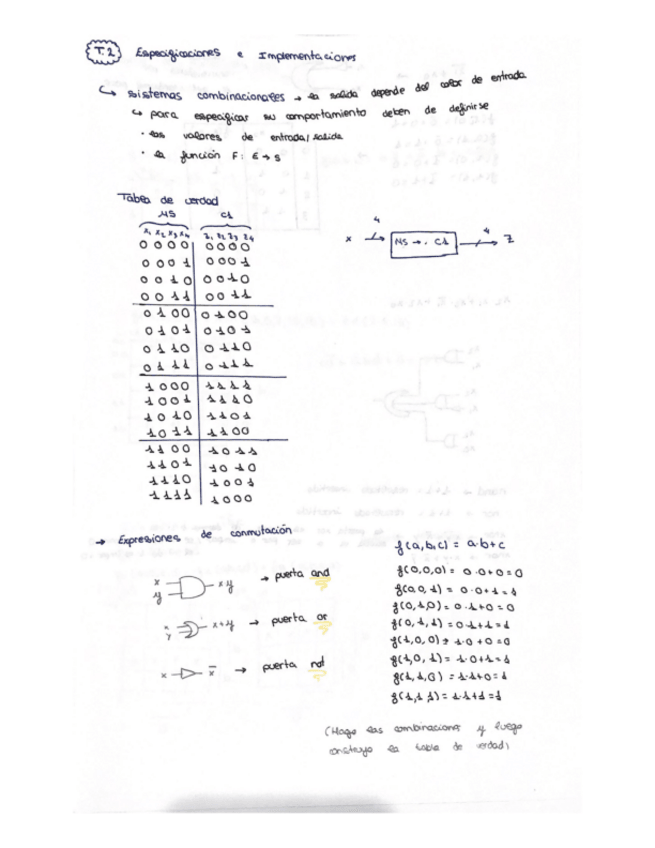 T.2 Especificaciones e Implementaciones
↳ sistemas combinacionales → la salida depende del valor de entrada
↳ para especificar su comportamiento deben de definirse
· los valores de entrada/salida
· la función F: E → S
Tabla de verdad
MS C1
x₁ x₂ x₃ x₄ z₁ z₂ z₃ z₄
0000 0000
0001 0001
0010 0010
0011 0011
0100 0100
0101 0101
0110 0110
0111 0111
1000 1111
1001 1110
1010 1101
1011 1100
1100 1011
1101 1010
1110 1001
1111 1000
4 4
x MS → C1 Z
→ Expresiones de conmutación
x y xy → puerta and
x y x+y → puerta or
x x̅ → puerta not
f(a,b,c) = a·b+c
f(0,0,0) = 0·0+0=0
f(0,0,1) = 0·0+1=1
f(0,1,0) = 0·1+0=0
f(0,1,1) = 0·1+1=1
f(1,0,0) = 1·0+0=0
f(1,0,1) = 1·0+1=1
f(1,1,0) = 1·1+0=1
f(1,1,1) = 1·1+1=1
(Hago las combinaciones y luego
construyo la tabla de verdad)